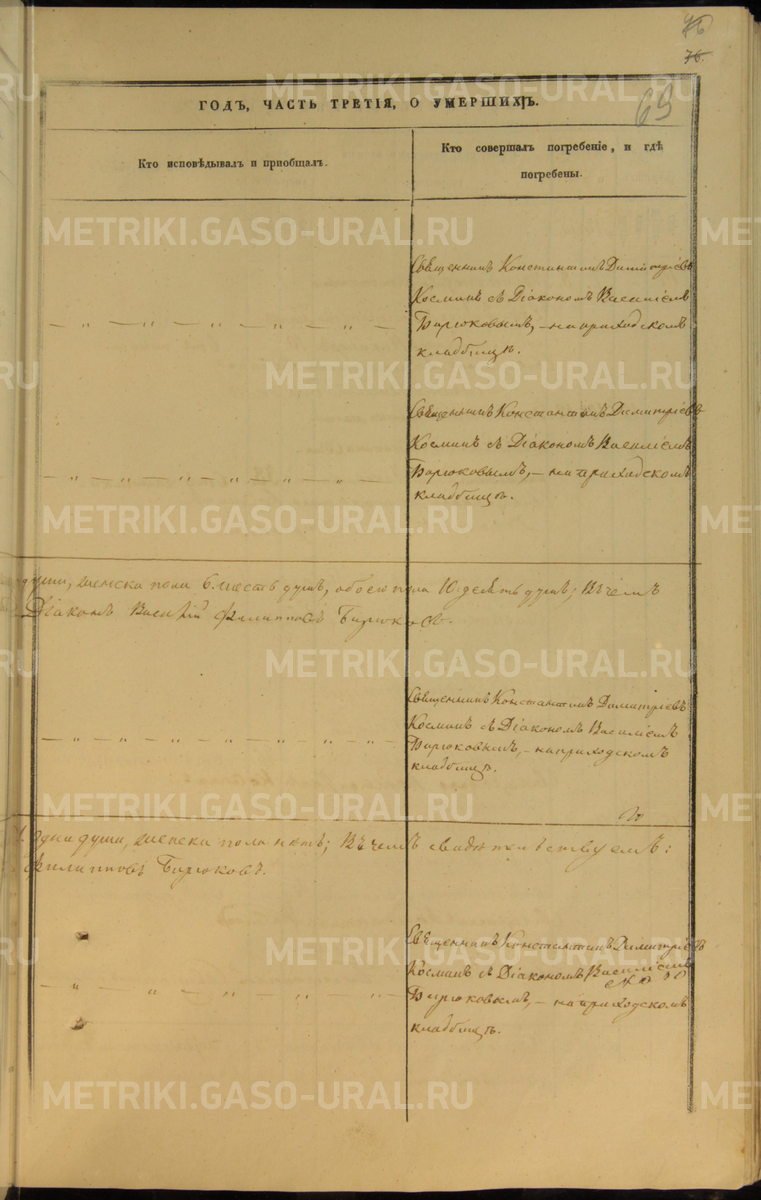 76
76.
69
ГОДЪ, ЧАСТЬ ТРЕТІЯ, О УМЕРШИХЪ.
Кто исповѣдывалъ и пріобщалъ.
Кто совершалъ погребеніе, и гдѣ
погребены.
Священникъ Константинъ Димитріевъ
Косминъ съ Діакономъ Василіемъ
— „ — „ — „ — „ — „ — „ — Бирюковымъ, — на приходскомъ
кладбищѣ.
Священникъ Константинъ Димитріевъ
Косминъ съ Діакономъ Василіемъ
— „ — „ — „ — „ — „ — „ — Бирюковымъ, — на приходскомъ
кладбищѣ.
души, женска пола 6. шесть душъ, обоего пола 10. десять душъ; Въ чемъ
Діаконъ Василій Филипповъ Бирюковъ.
Священникъ Константинъ Димитріевъ
Косминъ съ Діакономъ Василіемъ
— „ — „ — „ — „ — „ — „ — Бирюковымъ, — на приходскомъ
кладбищѣ.
1. одна душа, женска пола нѣтъ; Въ чемъ свидѣтельствуемъ:
Филипповъ Бирюковъ.
Священникъ Константинъ Димитріевъ
Косминъ съ Діакономъ Василіемъ
— „ — „ — „ — „ — „ — Бирюковымъ, — на приходскомъ
кладбищѣ.
METRIKI.GASO-URAL.RU